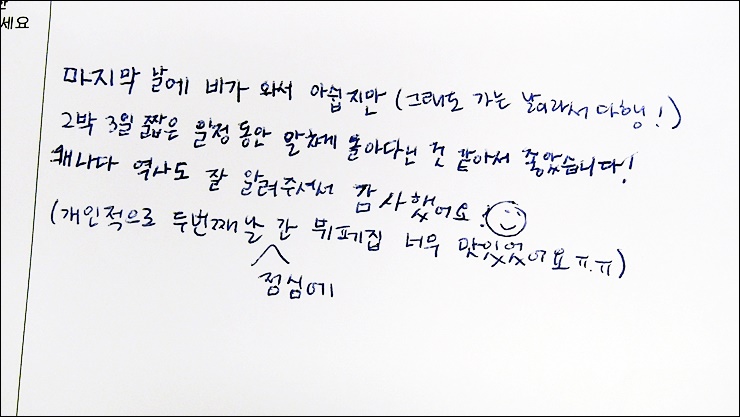 세요
마지막 날에 비가 와서 아쉽지만 (그래도 가는 날이라서 다행!)
2박 3일 짧은 일정 동안 알차게 돌아다닌 것 같아서 좋았습니다!
캐나다 역사도 잘 알려주셔서 감사했어요!
(개인적으로 두번째날 간 뷔페집 너무 맛있었어요 ㅠ.ㅠ)
점심에